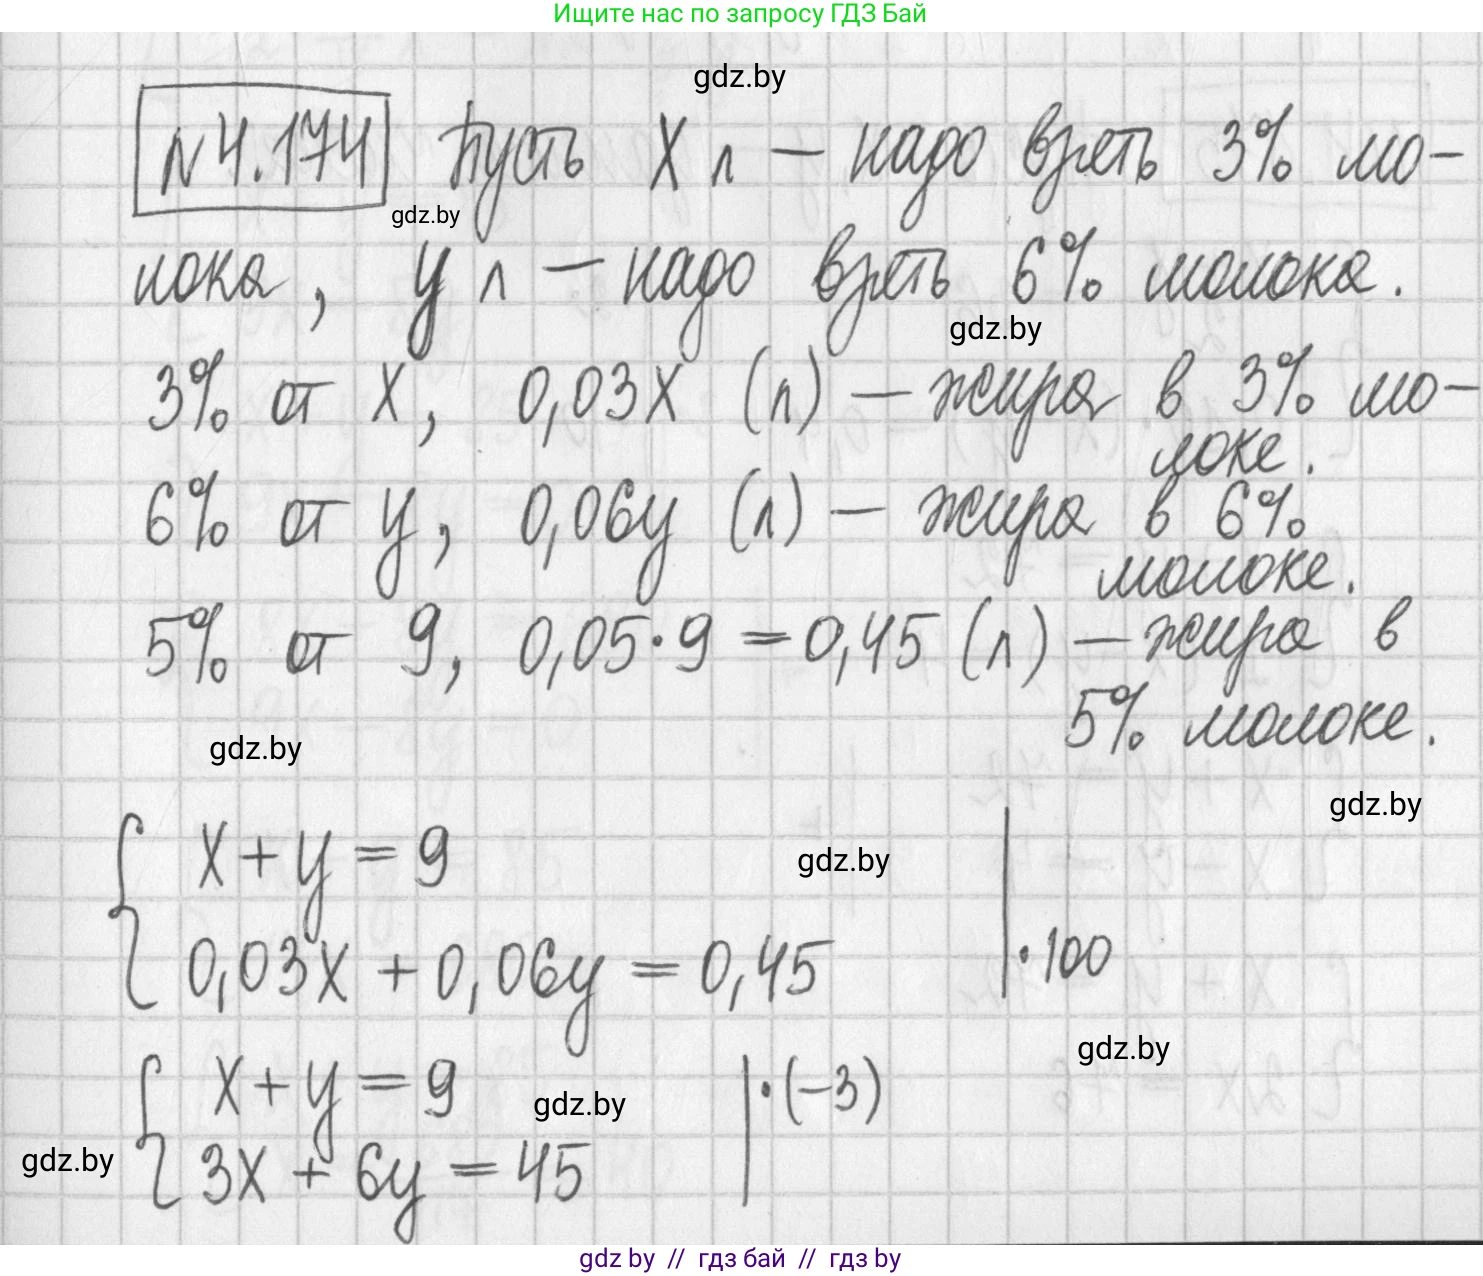 Ищите нас по запросу ГДЗ Бай
gdz.by
№4.174 Пусть х л – надо взять 3% мо-
gdz.by
лока, у л – надо взять 6% молока.
gdz.by
3% от х, 0,03х (л) – жира в 3% мо-
локе.
6% от у, 0,06у (л) – жира в 6%
молоке.
5% от 9, 0,05·9 = 0,45 (л) – жира в
5% молоке.
gdz.by
gdz.by
{ х + у = 9 |
gdz.by
0,03х + 0,06у = 0,45 | ·100
gdz.by
{ х + у = 9 | ·(–3)
gdz.by
gdz.by
3х + 6у = 45
gdz by // гдз бай // гдз by